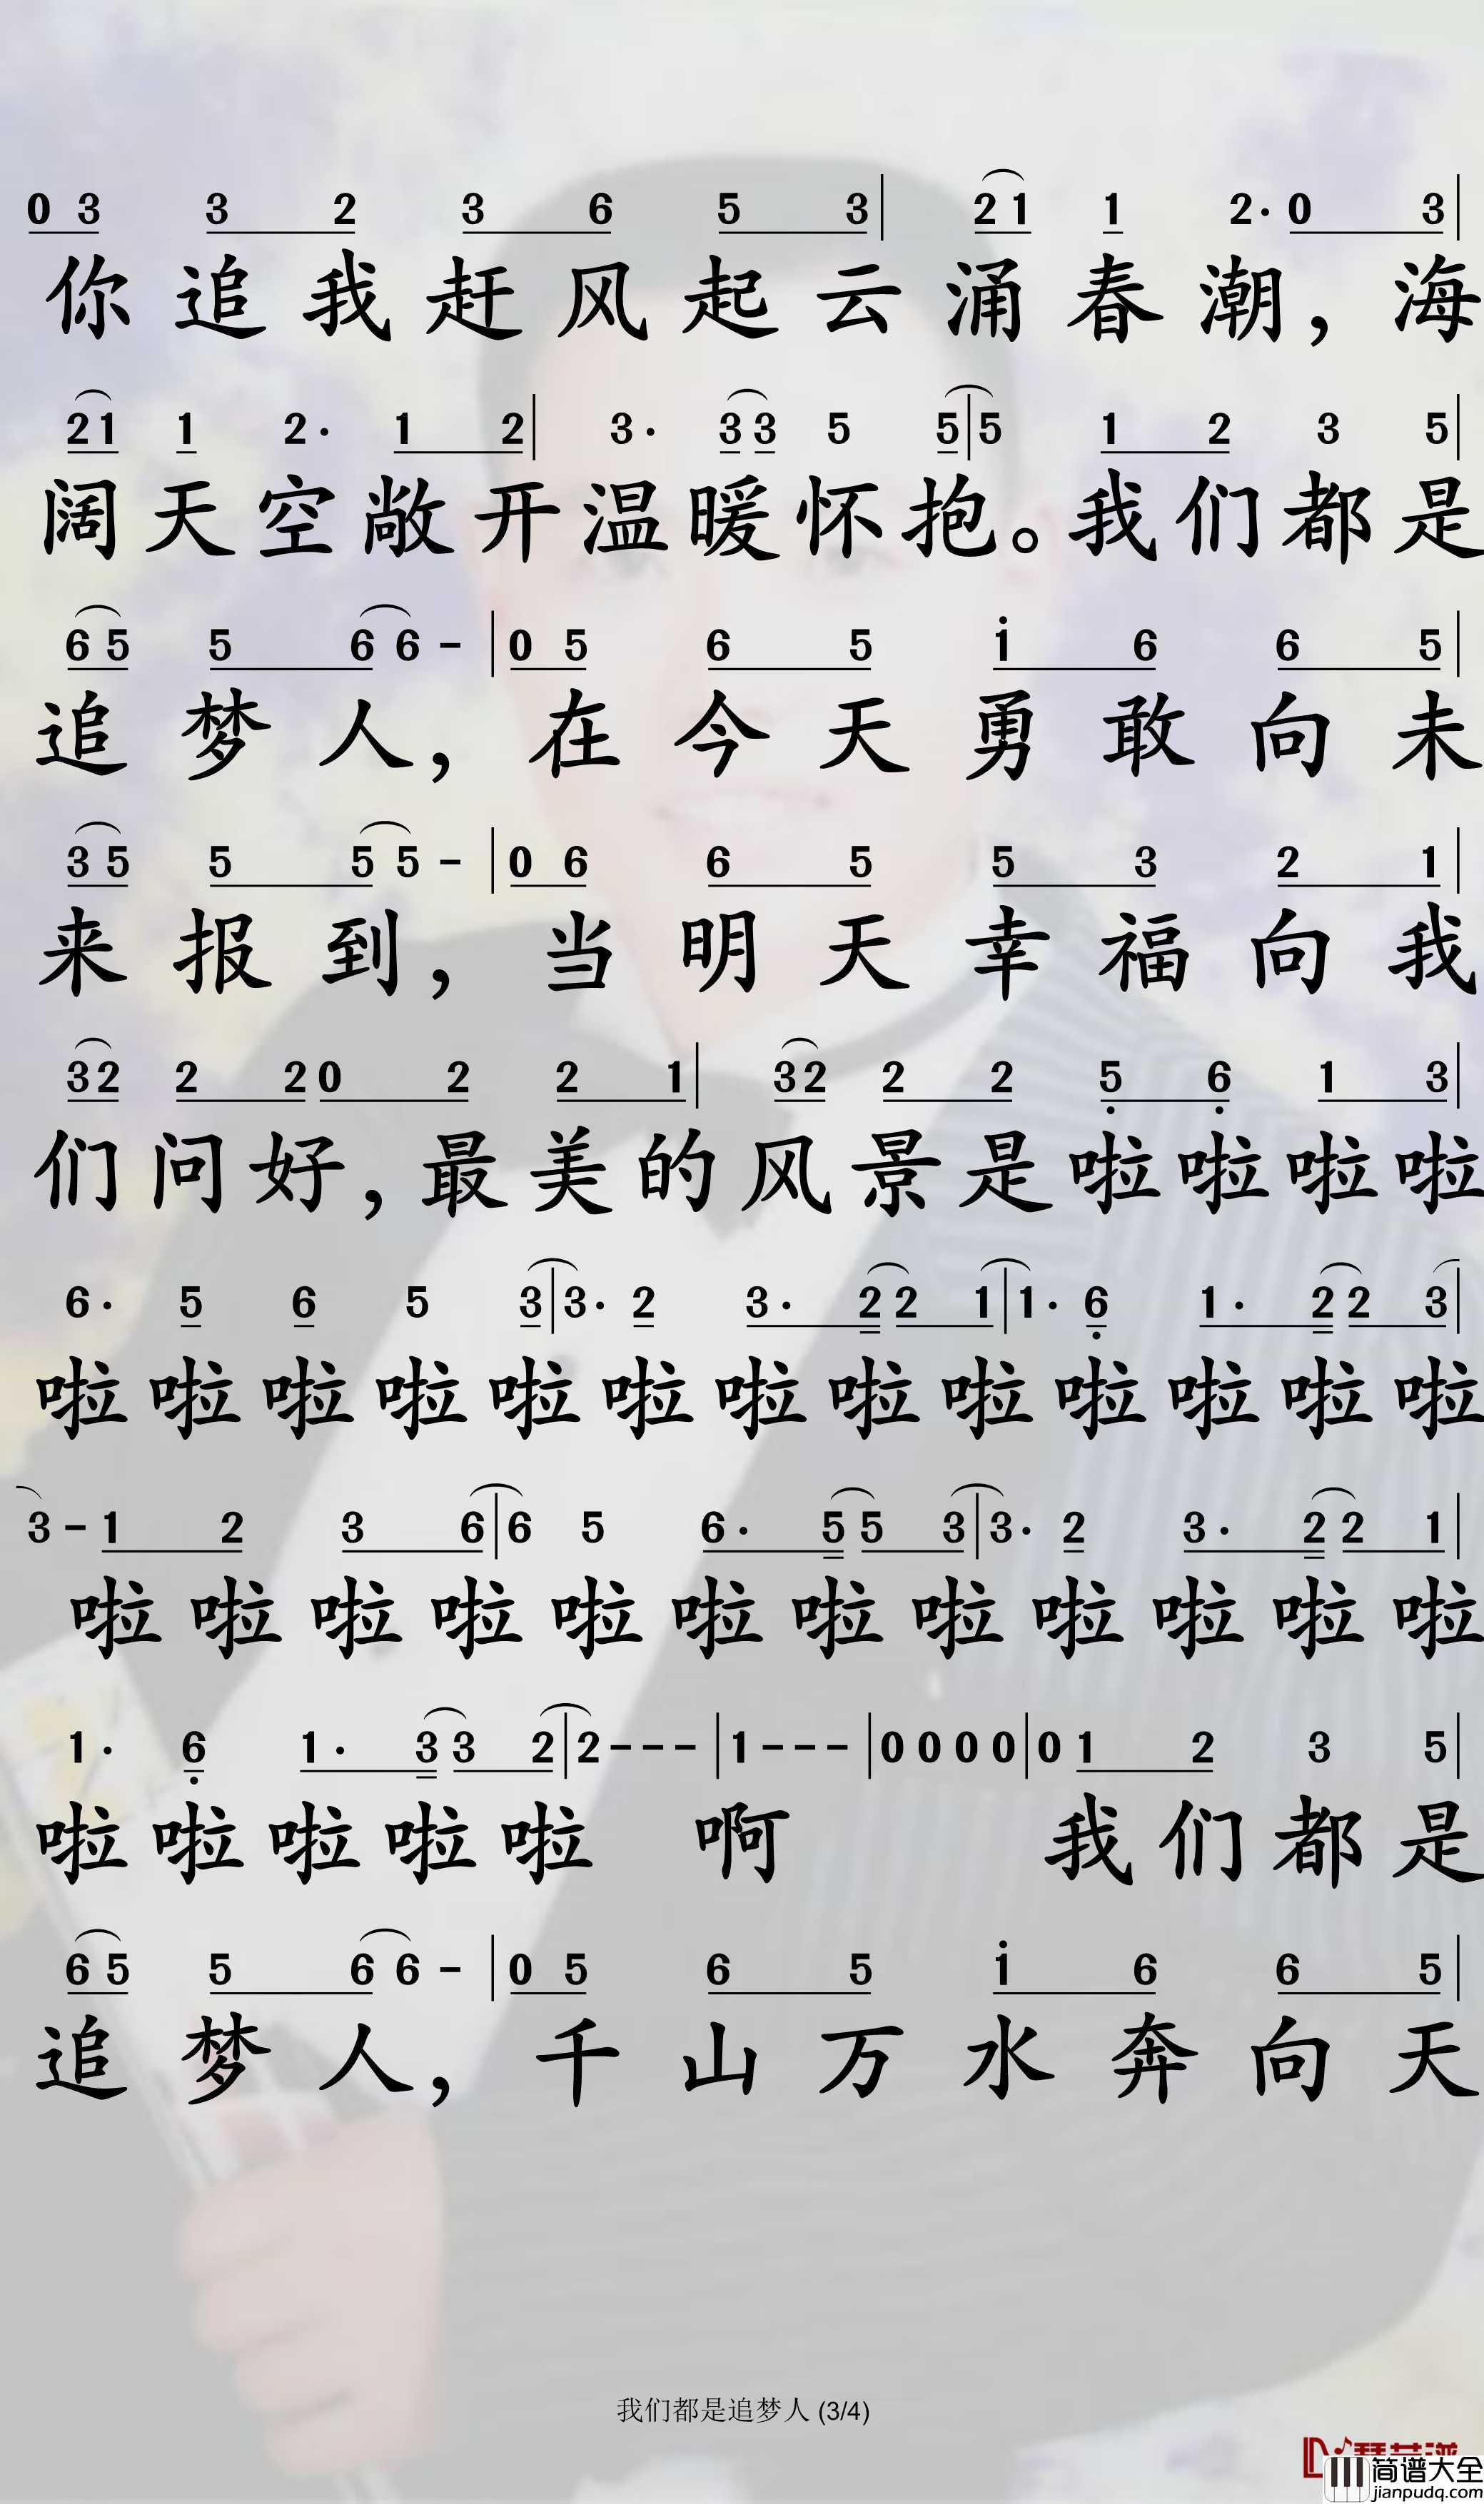 0 3 3 2 3 6 5 3 | 2 1 1 2· 0 3 |
你追我赶风起云涌春潮，海
2 1 1 2· 1 2 | 3· 3 3 5 5 | 5 1 2 3 5 |
阔天空敞开温暖怀抱。我们都是
6 5 5 6 6 - | 0 5 6 5 i 6 6 5 |
追梦人，在今天勇敢向未
3 5 5 5 5 - | 0 6 6 5 5 3 2 1 |
来报到，当明天幸福向我
3 2 2 2 0 2 2 1 | 3 2 2 2 5̣ 6̣ 1 3 |
们问好，最美的风景是啦啦啦啦
6· 5 6 5 3 | 3· 2 3· 2 2 1 | 1· 6̣ 1· 2 2 3 |
啦啦啦啦啦啦啦啦啦啦啦啦啦
3 - 1 2 3 6 | 6 5 6· 5 5 3 | 3· 2 3· 2 2 1 |
啦啦啦啦啦啦啦啦啦啦啦啦
1· 6̣ 1· 3 3 2 | 2 - - - | 1 - - - | 0 0 0 0 | 0 1 2 3 5 |
啦啦啦啦啦 啊 我们都是
6 5 5 6 6 - | 0 5 6 5 i 6 6 5 |
追梦人，千山万水奔向天
我们都是追梦人 (3/4)
简谱大全
jianpudq.com